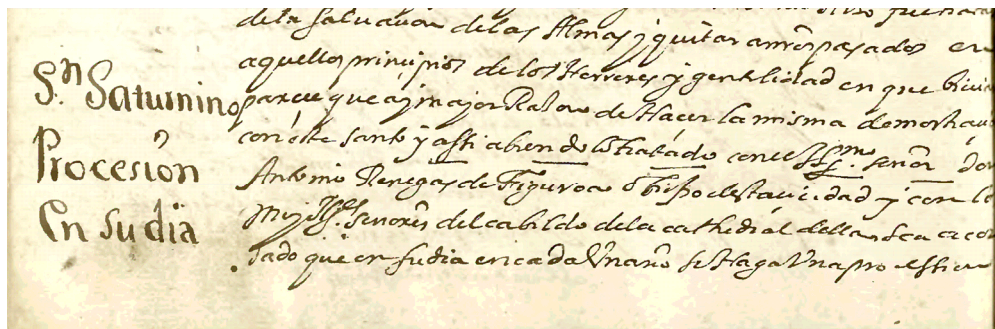 Sn. Saturnino
Procesion
En su dia
de la salvacion de las Almas y quitar a nros pasados en
aquellos principios de los Herrores y gentilidad en que bivia
parece que ay major Raçon de Hacer la misma demostraci
con este santo y assi abiendolo tratado con el Illmo. señor don
Antonio Venegas de Figueroa obispo desta ciudad y con lo
muy Illes. señores del cabildo de la cathedral della sea acor
dado que en su dia en cada Un año se Haga Una procession